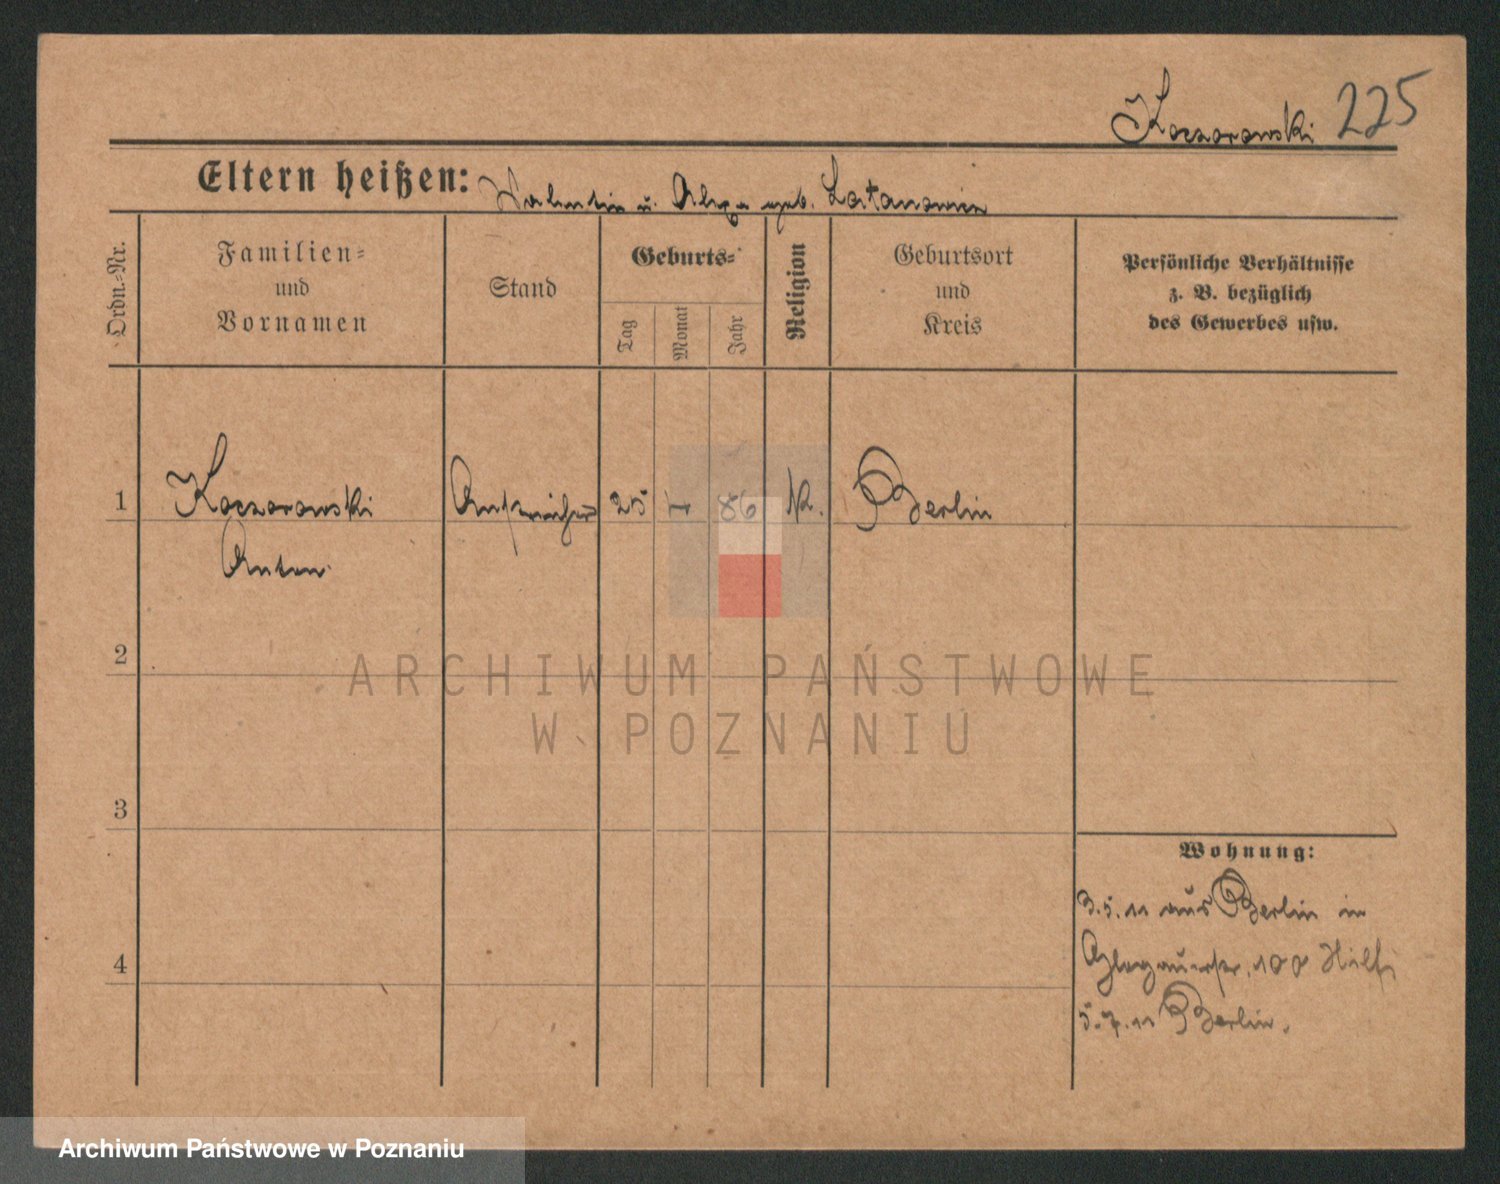 Koczorowski 225
Eltern heißen: Valentin u. geb. Latanowicz
Ordn.-Nr.
Familien-
und
Vornamen
Stand
Geburts-
Tag
Monat
Jahr
Religion
Geburtsort
und
Kreis
Persönliche Verhältnisse
z. B. bezüglich
des Gewerbes usw.
1 Koczorowski Anstreicher 25 1 86 K. Berlin
Anton
2
3
4
Wohnung:
3.5.11 aus Berlin in
100
5.7.11 Berlin.
ARCHIWUM PAŃSTWOWE
W POZNANIU
Archiwum Państwowe w Poznaniu